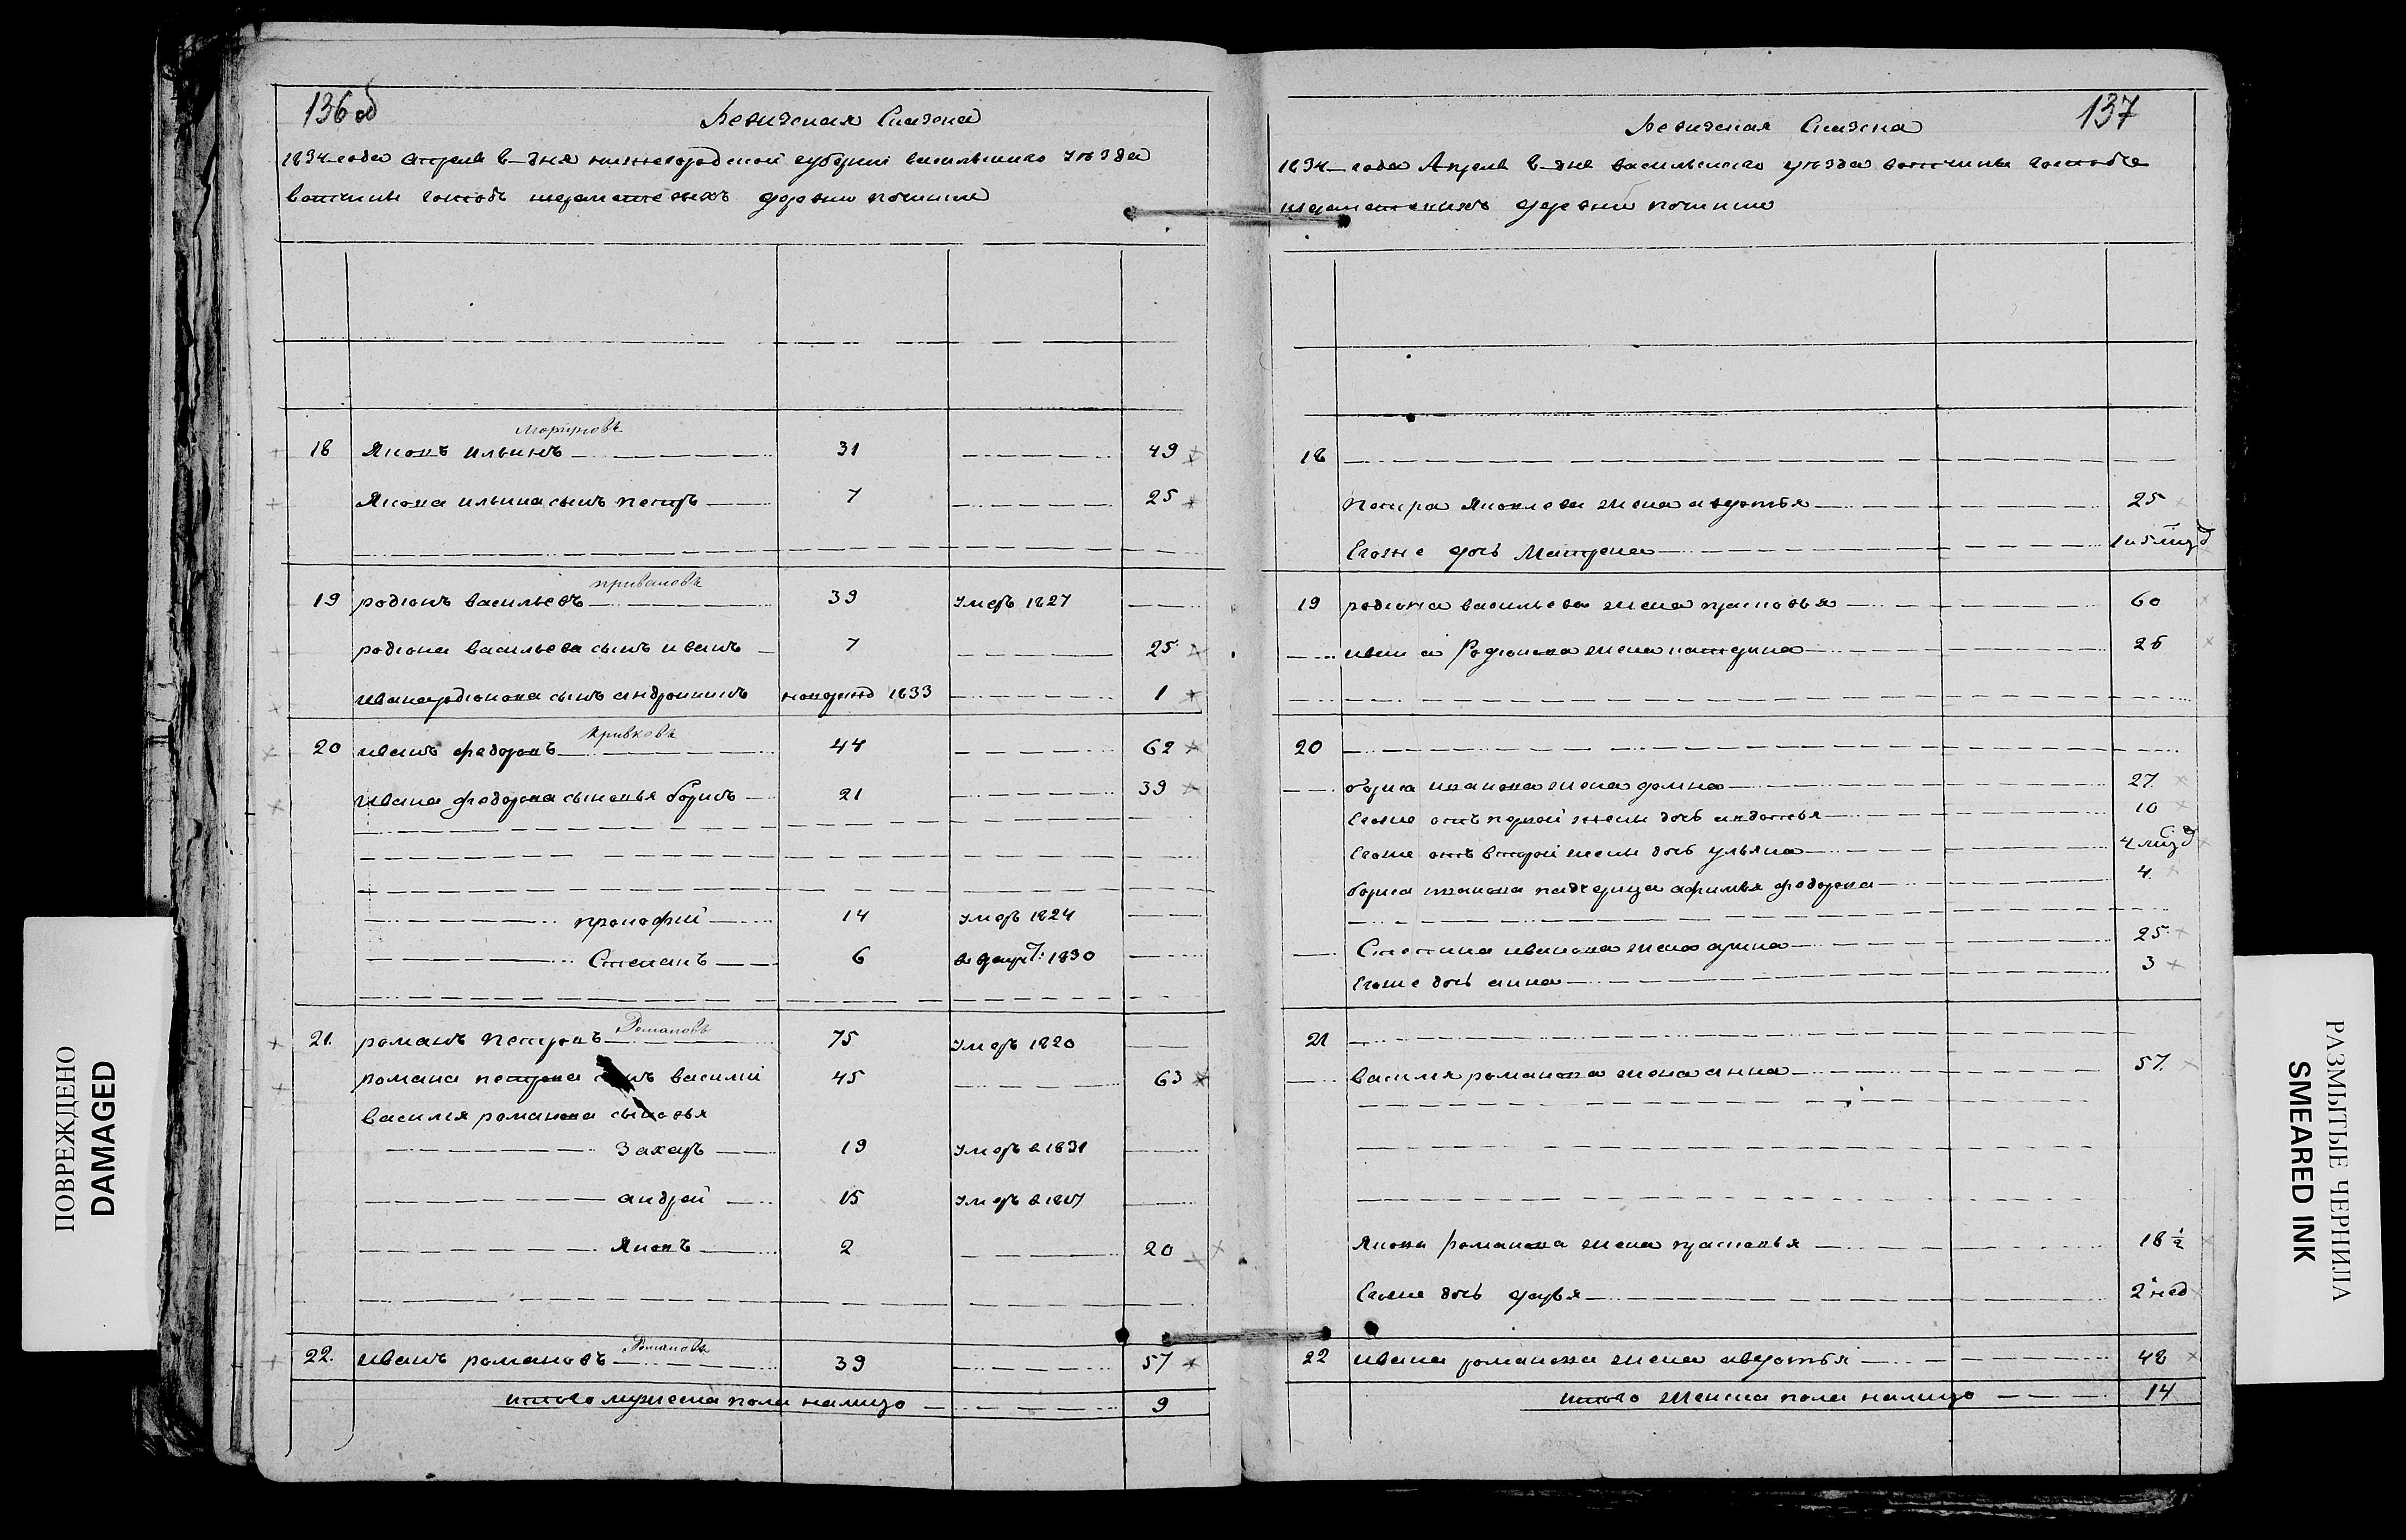 136 об
Ревизская Сказка
1834 года апреля 8 дня нижегородской губернии васильскаго уѣзда
вотчины господъ шереметевыхъ деревни починки
18 Яковъ ильинъ 31 49
Якова ильина сынъ петръ 7 25
приваловъ
19 родіонъ васильевъ 39 умеръ 1827
родіона васильева сынъ иванъ 7 25
ивана родіонова сынъ андроникъ новорожд 1833 1
кривковъ
20 иванъ федоровъ 44 62
ивана федорова сыновья борисъ 21 39
прокофій 14 умеръ 1824
Степанъ 6 в 1830
Романовъ
21. романъ петровъ 75 умеръ 1820
романа петрова сынъ василий 45 63
василия романова сыновья
Захаръ 19 умеръ в 1831
андрей 15 умеръ в
Яковъ 2 20
Романовъ
22. иванъ романовъ 39 57
итого мужеска пола налицо 9
137
Ревизская Сказка
1834 года Апреля 8 дня васильскаго уѣзда вотчины господъ
шереметевыхъ деревни починки
18
петра Яковлева жена авдотья 25
Егоже дочь Матрена
19 родіона васильева жена прасковья 60
ивана Родіонова жена катерина 26
20
бориса иванова жена домна 27
Егоже отъ первой жены дочь авдотья 10
Егоже отъ второй жены дочь ульяна
бориса иванова падчерица афимья федорова 4
Степана иванова жена арина 25
Егоже дочь анна 3
21
василия романова жена анна 57
Якова романова жена прасковья 18 ½
Егоже дочь дарья 2 нед
22 ивана романова жена авдотья 48
итого женска пола налицо 14
ПОВРЕЖДЕНО
DAMAGED
РАЗМЫТЫЕ ЧЕРНИЛА
SMEARED INK